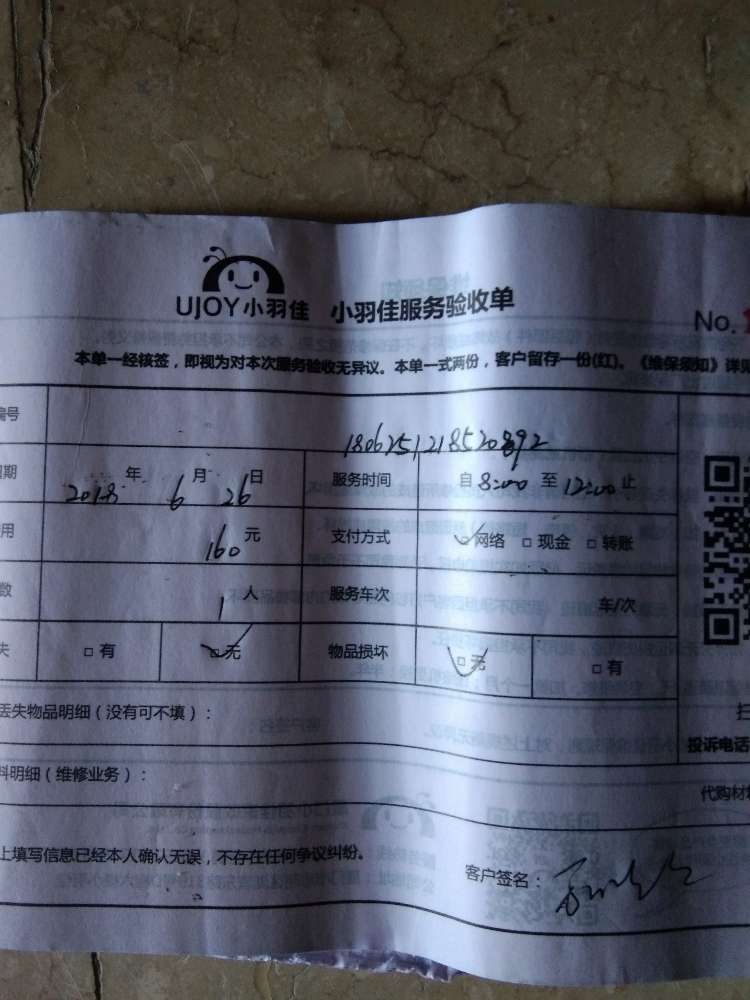 UJOY小羽佳 小羽佳服务验收单
No.
本单一经核签，即视为对本次服务验收无异议。本单一式两份，客户留存一份(红)。《维保须知》详见
编号 180625121852089 2
日期 2018 年 6 月 26 日 服务时间 自 8:00 至 12:00 止
用 160 元 支付方式 网络 □ 现金 □ 转账
数 1 人 服务车次 车/次
失 □ 有 □ 无 物品损坏 □ 无 □ 有
丢失物品明细（没有可不填）：
投诉电话
料明细（维修业务）：
代购材
上填写信息已经本人确认无误，不存在任何争议纠纷。
客户签名：